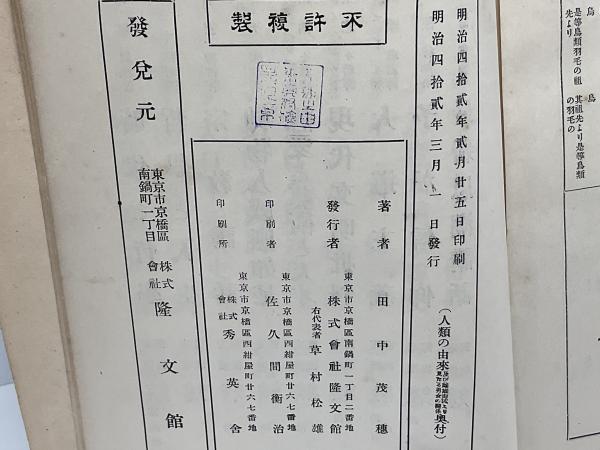 鳥
是等鳥類羽毛の祖
先より
鳥
其祖先より是等鳥類
の羽毛の
明治四拾貳年貳月廿五日印刷
明治四拾貳年三月一日發行
(人類の由來
奧付)
不許複製
著者 田中茂穗
東京市京橋區南鍋町一丁目二番地
發行者 株式會社隆文館
右代表者 草村松雄
東京市京橋區西紺屋町廿六七番地
印刷者 佐久間衡治
東京市京橋區西紺屋町廿六七番地
印刷所 株式會社 秀英舍
發兌元
東京市京橋區
南鍋町一丁目
株式會社 隆文館